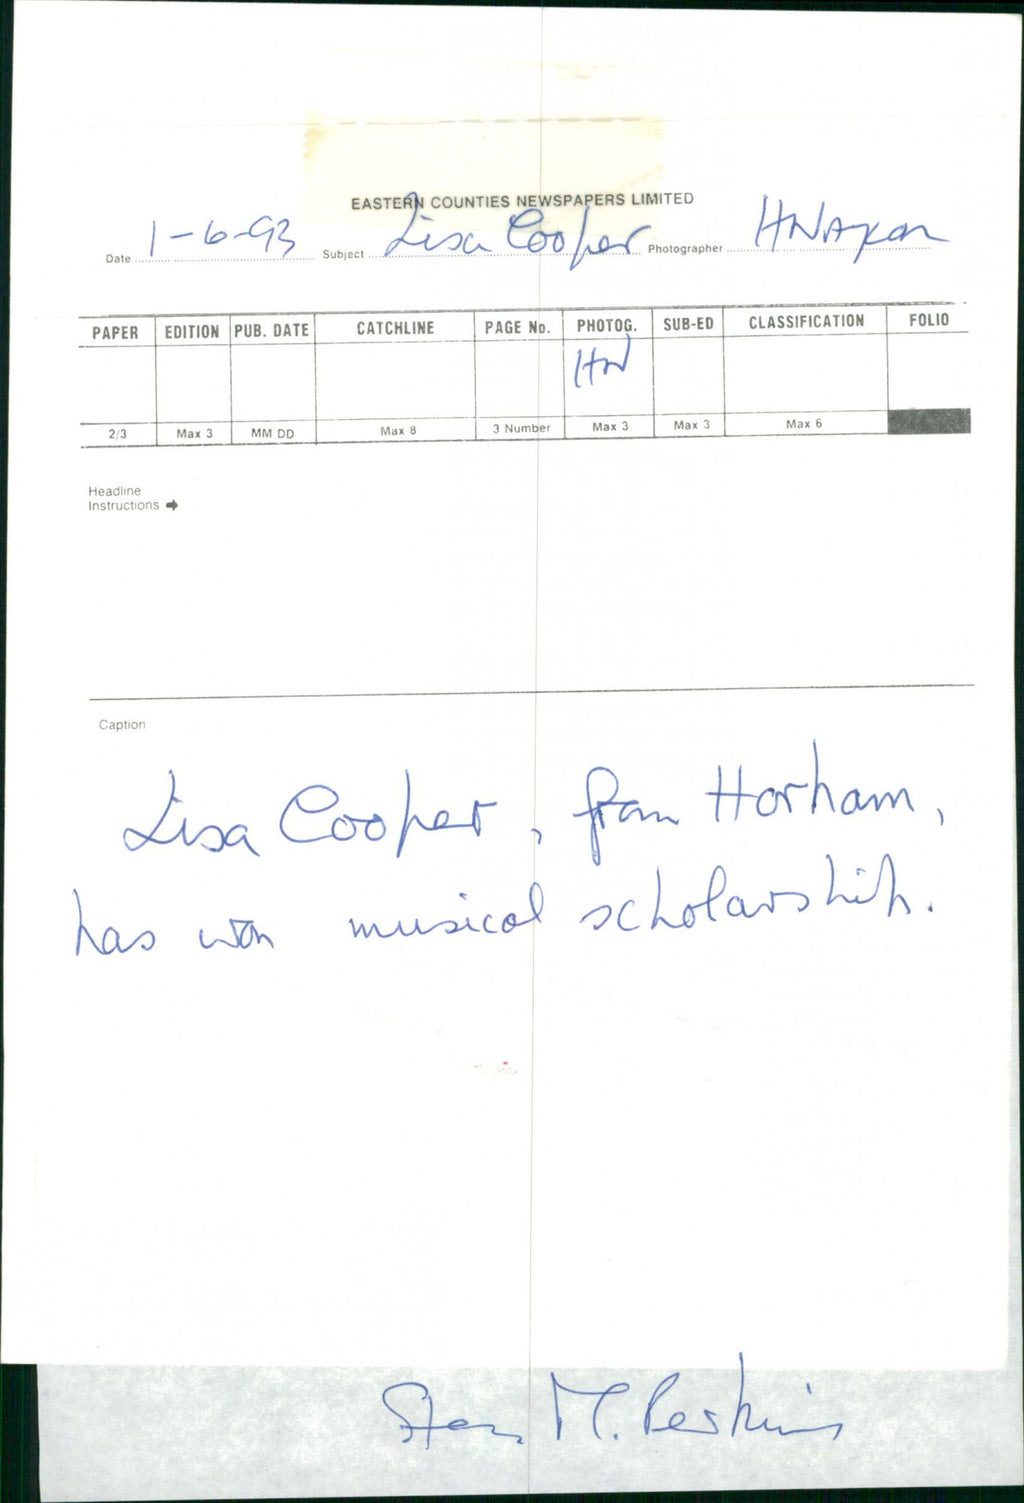 EASTERN COUNTIES NEWSPAPERS LIMITED
Date 1-6-93 Subject Lisa Cooper Photographer
PAPER EDITION PUB. DATE CATCHLINE PAGE No. PHOTOG. SUB-ED CLASSIFICATION FOLIO
HW
2/3 Max 3 MM DD Max 8 3 Number Max 3 Max 3 Max 6
Headline
Instructions ➡
Caption
Lisa Cooper, from Horham,
has won musical scholarship.
M. Perkins